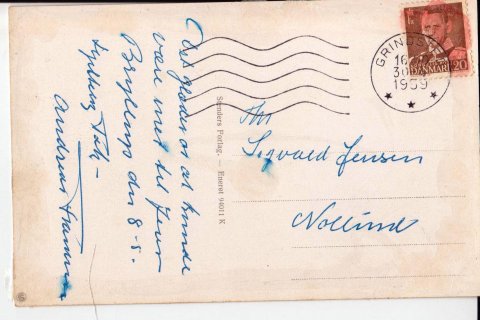 Det glæder os at kunde
være med til Jeres
Bryllup den 8-5.
Hjertelig Tak
Andreas
Stenders Forlag. — Eneret 94011 K
Hr.
Sigvald Jensen
Nollund
GRINDSTED
1959
DANMARK 20